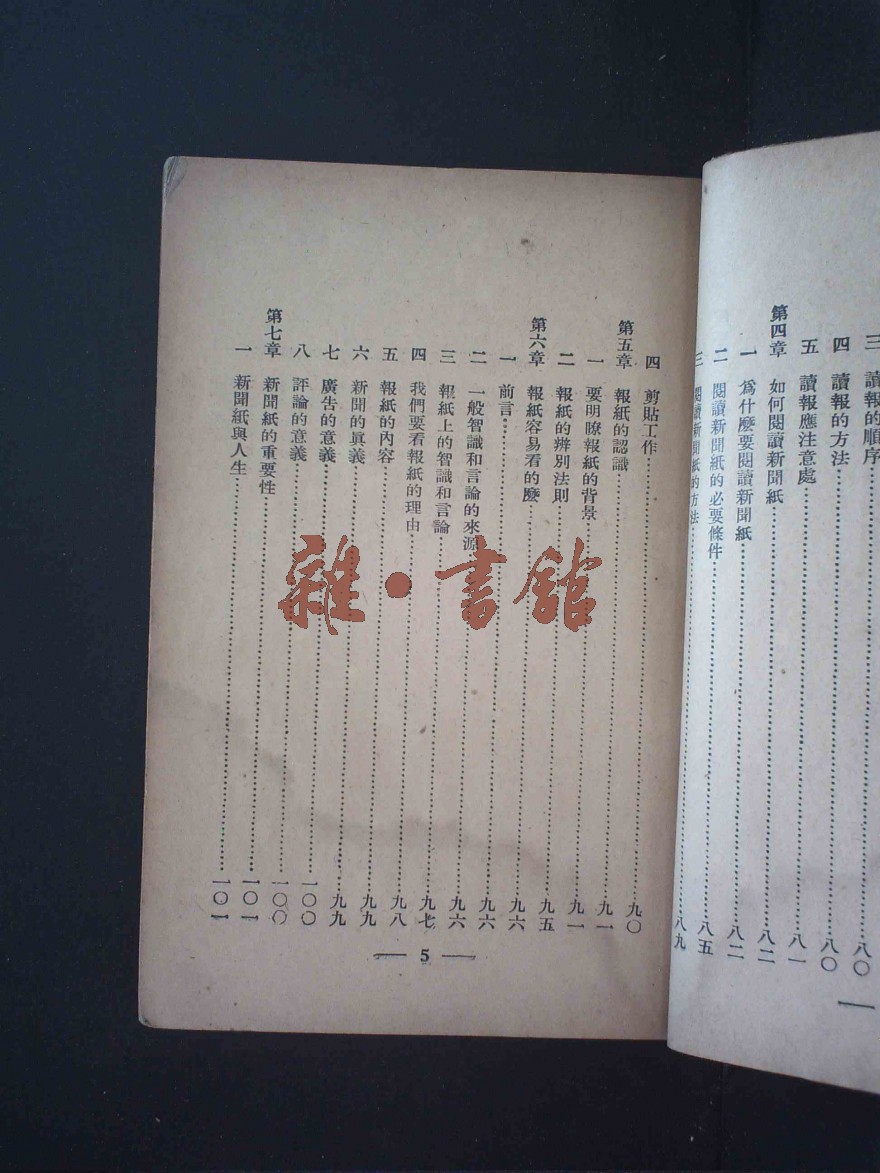 三 讀報的順序……八〇
四 讀報的方法……八〇
五 讀報應注意處……八一
第四章 如何閱讀新聞紙……八二
一 爲什麼要閱讀新聞紙……八二
二 閱讀新聞紙的必要條件……八五
三 閱讀新聞紙的方法……八九
四 剪貼工作……九〇
第五章 報紙的認識……九一
一 要明瞭報紙的背景……九一
二 報紙的辨別法則……九五
第六章 報紙容易看的麼……九六
一 前言……九六
二 一般智識和言論的來源……九六
三 報紙上的智識和言論……九七
四 我們要看報紙的理由……九八
五 報紙的內容……九九
六 新聞的眞義……九九
七 廣告的意義……一〇〇
八 評論的意義……一〇〇
第七章 新聞紙的重要性……一〇一
一 新聞紙與人生……一〇一
— 5 —
雜·書館